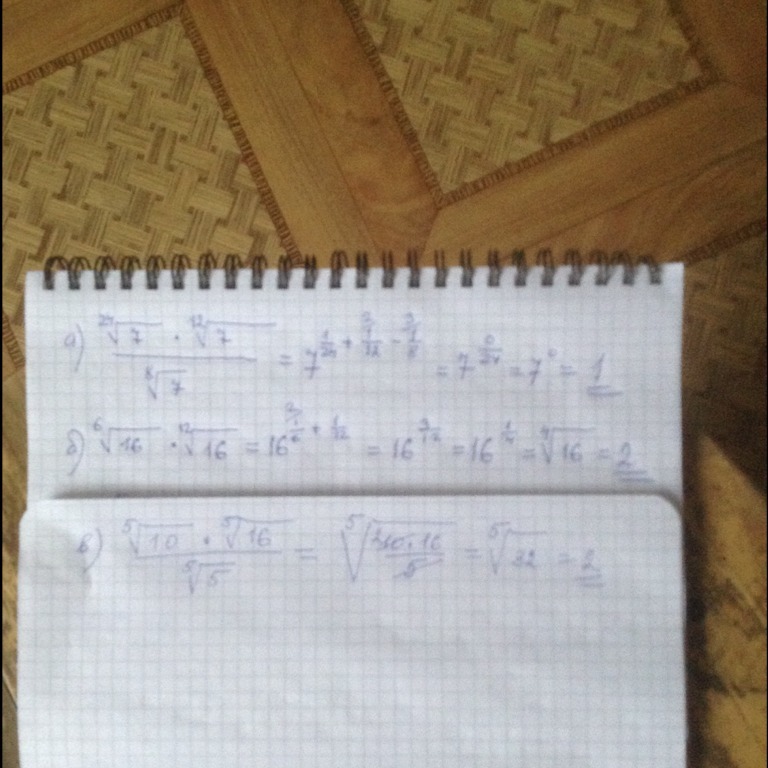 а) (²⁴√7 · ¹²√7) / ⁸√7 = 7^(1/24 + 1/12 − 1/8) = 7^(0/24) = 7⁰ = 1
б) ⁶√16 · ¹²√16 = 16^(1/6 + 1/12) = 16^(3/12) = 16^(1/4) = ⁴√16 = 2
в) (⁵√10 · ⁵√16) / ⁵√5 = ⁵√(10·16 / 5) = ⁵√32 = 2